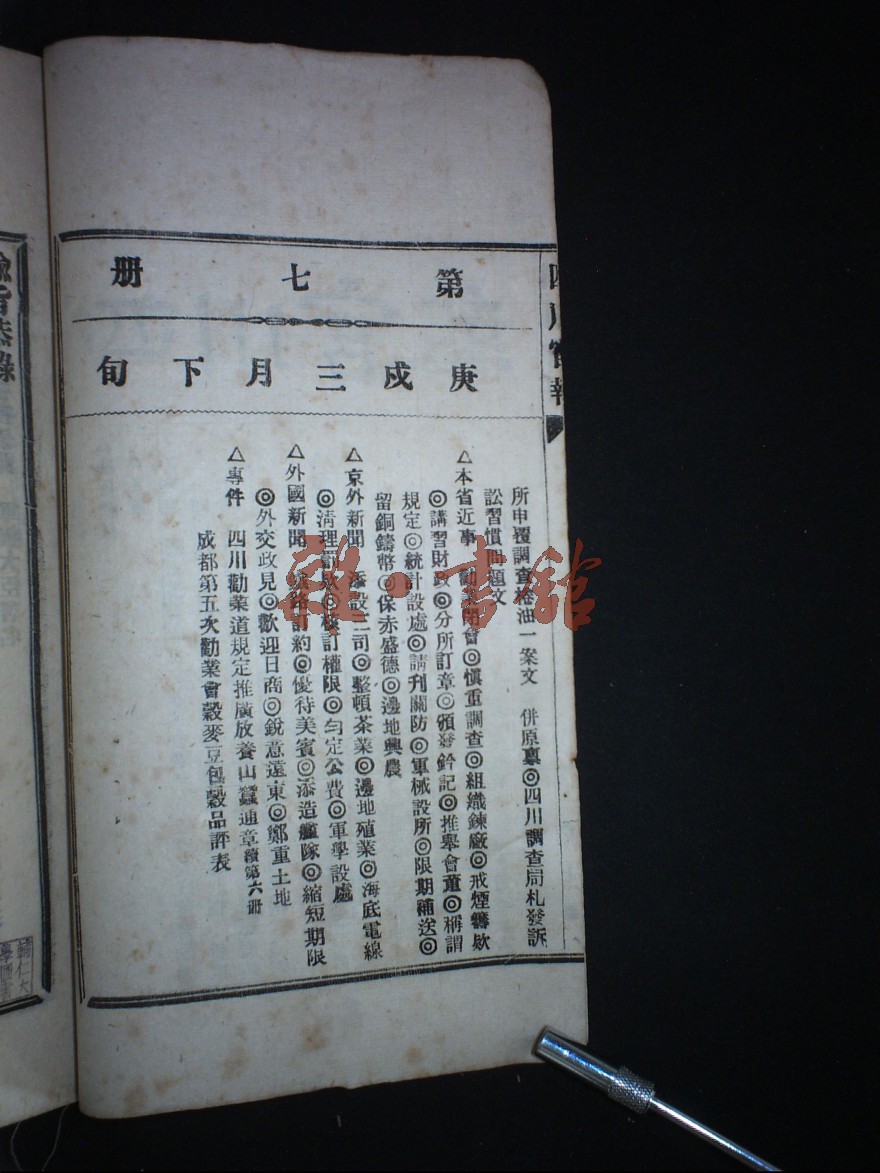 四川官報
第七册
庚戌三月下旬
所申覆調查桊油一案文　併原稟◎四川調查局札發訴
訟習慣問題文
△本省近事　勸業開會◎慎重調查◎組織鍊廠◎戒煙籌欵
◎講習財政◎分所訂章◎頒發鈐記◎推舉會董◎稱謂
規定◎統計設處◎請刊關防◎軍械設所◎限期補送◎
留銅鑄幣◎保赤盛德◎邊地興農
△京外新聞　添設三司◎整頓茶業◎邊地殖業◎海底電線
◎清理罰欵◎核訂權限◎勻定公費◎軍學設處
△外國新聞　訂約◎優待美賓◎添造艦隊◎縮短期限
◎外交政見◎歡迎日商◎銳意遠東◎鄭重土地
△專件　四川勸業道規定推廣放養山蠶通章續第六册
成都第五次勸業會穀麥豆包穀品評表
諭旨恭錄
輔仁大
雜·書館